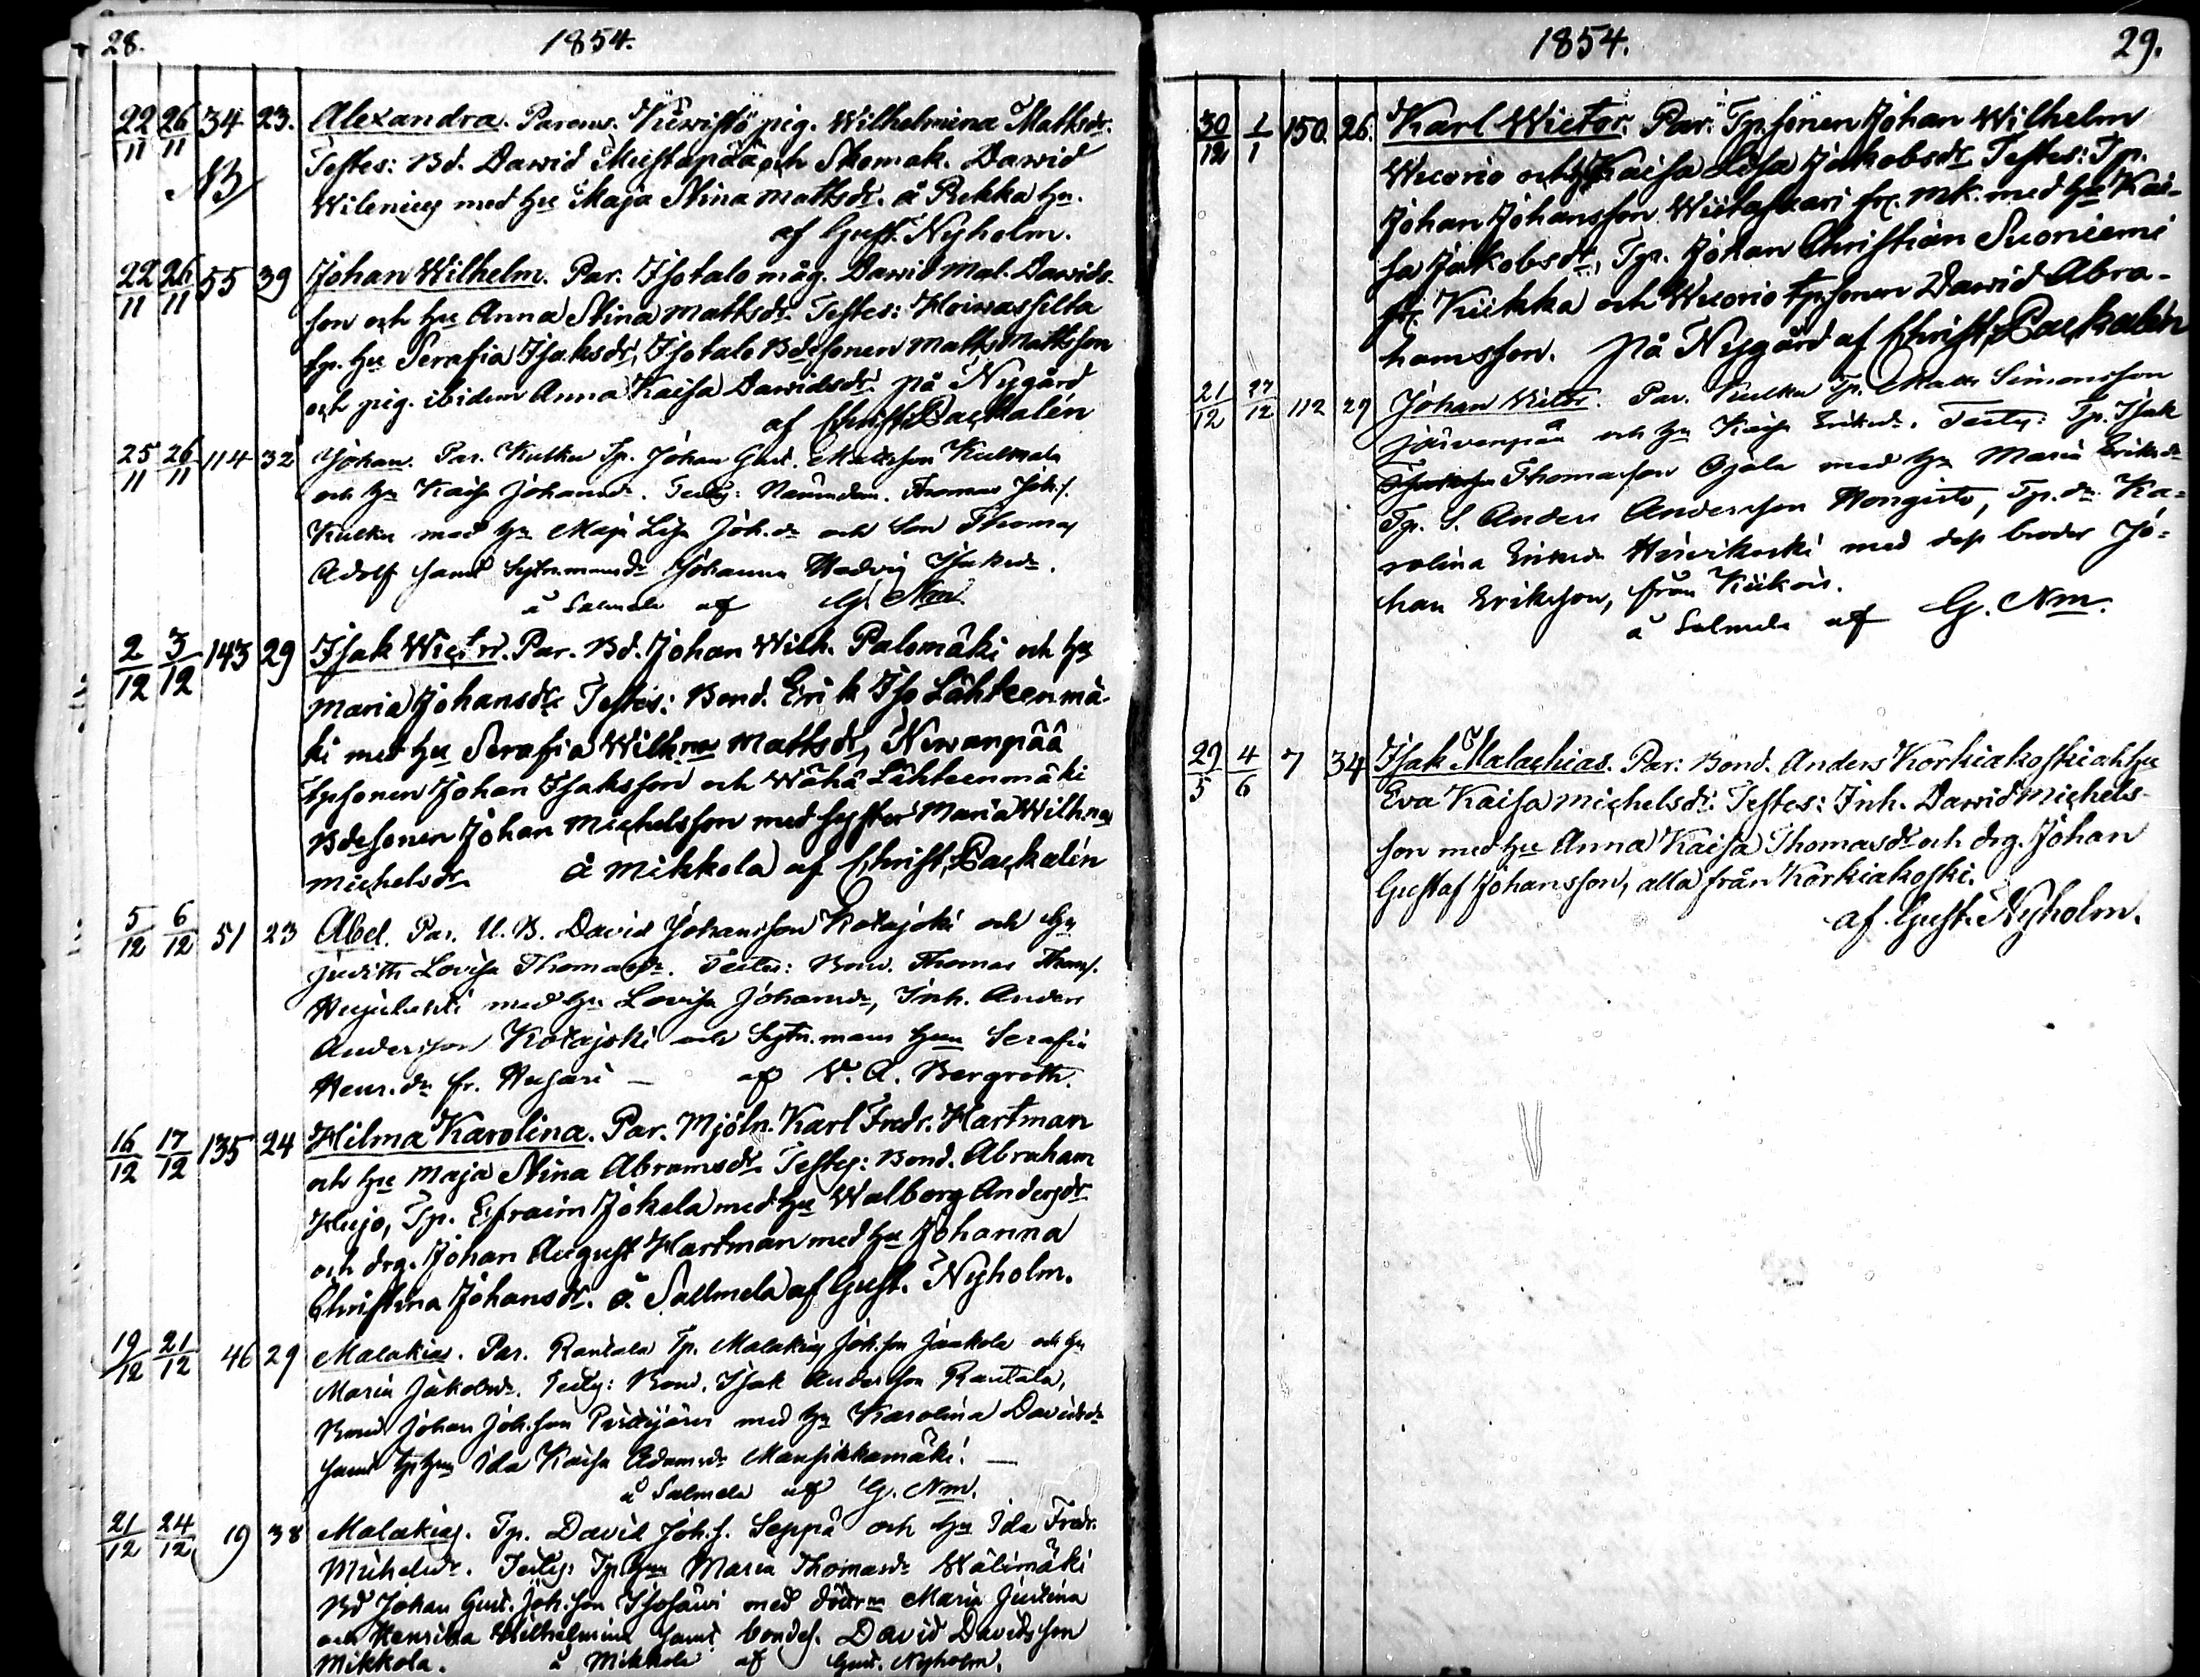 28. 1854.
22/11 26/11 34 23. Alexandra. Parens. Kiwistö pig. Wilhelmina Mattsdr.
NB Testes: Bd. Dawid Mustapää och Skomak. Dawid
Wilenius med hu Maja Stina Mattsdr. å Pukka hn.
af Gust. Nyholm.
22/11 26/11 55 39 Johan Wilhelm. Par. Isotalo måg. Dawid Mal. Dawids-
son och hu Anna Stina Mattsdr. Testes: Hoiwassilta
tp. hu Serafia Isaksdr, Isotalo Bdesonen Matts Mattsson
och pig. ibidem Anna Kaisa Dawidsdr. på Nygård
af Christ. Packalén
25/11 26/11 114 32 Johan. Par. Kulku Tp. Johan Gust. Mattsson Kulmala
och hu Kaisa Johansdr. Testes: Nämndem. Thomas Joh.s.
Kulku med hu Maja Lisa Joh.dr och Son Thomas
Adolf samt Sytn.mansdr Johanna Hedvig Isaksdr.
å Salmela af G. Nm.
2/12 3/12 143 29 Isak Wictor. Par. Bd. Johan Wilh. Palomäki och hu
Maria Johansdr. Testes: Bond. Erik Iso Lähteenmä-
ki med hu Serafia Wilhna Mattsdr, Newanpää
tpsonen Johan Isaksson och Wähä Lähteenmäki
Bdesonen Johan Michelsson med syster Maria Wilhna
Michelsdr. å Mikkola af Christ. Packalén
5/12 6/12 51 23 Abel. Par. U.B. David Johansson Kotajoki och hu
Judith Lovisa Thomasdr. Testes: Bond. Thomas Thoms.
med hu Lovisa Johansdr, Inh. Anders
Andersson Kotajoki och Sytn.mans hum Serafia
Henr.dr fr. Husari — af V. A. Bergroth.
16/12 17/12 135 24 Hilma Karolina. Par. Mjöln. Karl Fredr. Hartman
och hu Maja Stina Abramsdr. Testes: Bond. Abraham
Hujo, Tp. Efraim Jokela med hu Walborg Andersdr
och drg. Johan August Hartman med hu Johanna
Christina Johansdr. å Sallmela af Gust. Nyholm.
19/12 21/12 46 29 Malakias. Par. Rantala Tp. Malakias Joh.son Jaakola och hu
Maria Jakobsdr. Testes: Bond. Isak Andersson Rantala,
Bond Johan Joh.son Pitkäjärvi med hu Karolina Davidsdr
samt tp.hum Ida Kaisa Adamsdr Mansikkamäki. —
å Salmela af G. Nm.
21/12 24/12 19 38 Malakias. Tp. David Joh.s. Seppä och hu Ida Fredr.
Michelsdr. Testes: Tp.hum Maria Thomasdr Wälimäki
Bd Johan Gust. Joh.son Isosäwi med döttrna Maria Justina
och Henrika Wilhelmina samt bondes. David Davidsson
Mikkola. å Mikkola af Gust. Nyholm.
1854. 29.
30/12 1/1 150. 26. Karl Wictor. Par: Tp.sonen Johan Wilhelm
Wuorio och hu Kaisa Lisa Jakobsdr. Testes: Tp.
Johan Johansson Wiitasaari fr. Mk. med hu Kai-
sa Jakobsdr, Tp. Johan Christian Suoniemi
fr. Kiikka och Wuorio tpsonen Dawid Abra-
hamsson. på Nygård af Christ. Packalén
21/12 27/12 112 29 Johan Victor. Par. Kulku Tp. Matts Simonsson
Järvenpää och hu Kaisa Eriksdr. Testes: Tp. Isak
Thomasson Ojala med hu Maria Eriksdr
Tp. S. Anders Andersson Hongisto, Tp.dr Ka-
rolina Eriksdr med dess broder Jo-
han Eriksson, från Kiikois.
å Salmela af G. Nm.
29/5 4/6 7 34 Isak Malachias. Par: Bond. Anders Korkiakoski och hu
Eva Kaisa Michelsdr. Testes: Inh. Dawid Michels-
son med hu Anna Kaisa Thomasdr och drg. Johan
Gustaf Johansson, alla från Korkiakoski.
af Gust. Nyholm.